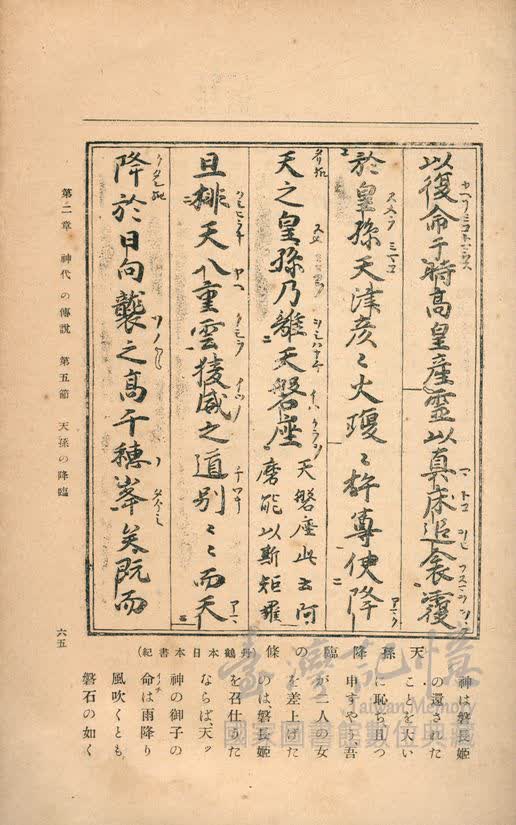 以復命于時高皇産霊以真床追衾覆
於皇孫天津彦〻火瓊〻杵尊使降
天之皇孫乃離天磐座 天磐座此云阿
磨能以斯矩羅
且排天八重雲稜威之道別〻〻而天
降於日向襲之高千穗峯矣既而
天孫降臨の條(丹鶴本日本書紀)
神は磐長姬
の還された
ことを大い
に恥ぢ、且つ
申すやう、吾
が二人の女
を差上げた
のは、磐長姬
を召仕うた
ならば、天ッ
神の御子の
命は雨降り
風吹くとも、
磐石の如く
第二章 神代の傳說 第五節 天孫の降臨
六五
臺灣記憶
Taiwan Memory
國家圖書館數位典藏